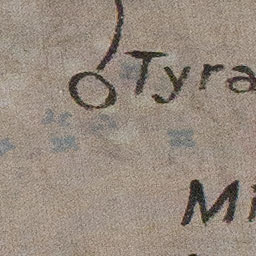 Tyra
Mi